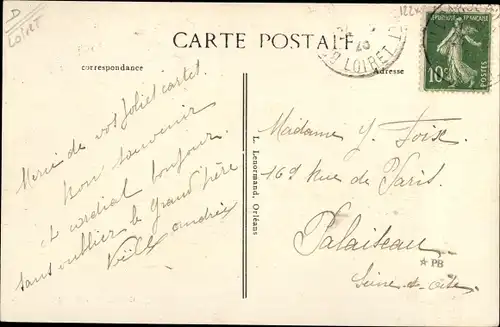 D
Loiret
CARTE POSTALE
correspondance
Adresse
LOIRET
RÉPUBLIQUE FRANÇAISE
10c
POSTES
Merci de vos jolies cartes
Bon souvenir
et cordial bonjour
sans oublier le grand père
Madame Y. Toise
169 Rue de Paris
Palaiseau
Seine-et-Oise
L. Lenormand, Orléans
* PB